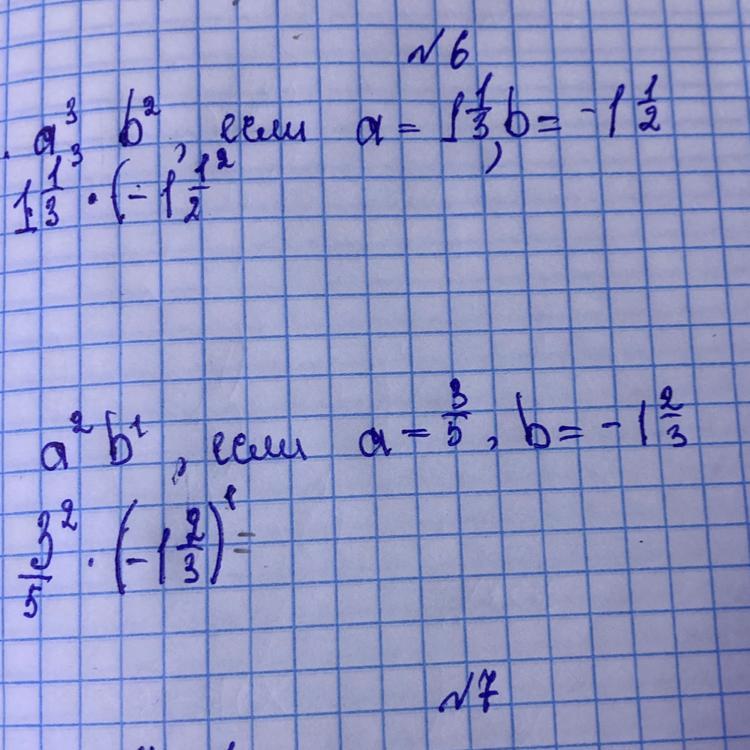 №6
a³ b², если a = 1 1/3, b = -1 1/2
1 1/3³ · (-1 1/2²
a² b¹, если a = 3/5, b = -1 2/3
3²/5 · (-1 2/3)¹ =
№7